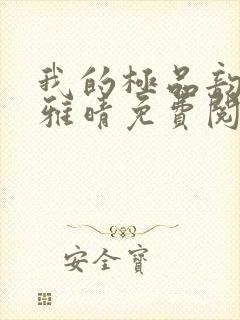 我的極品
雅晴免費閱
安全寶